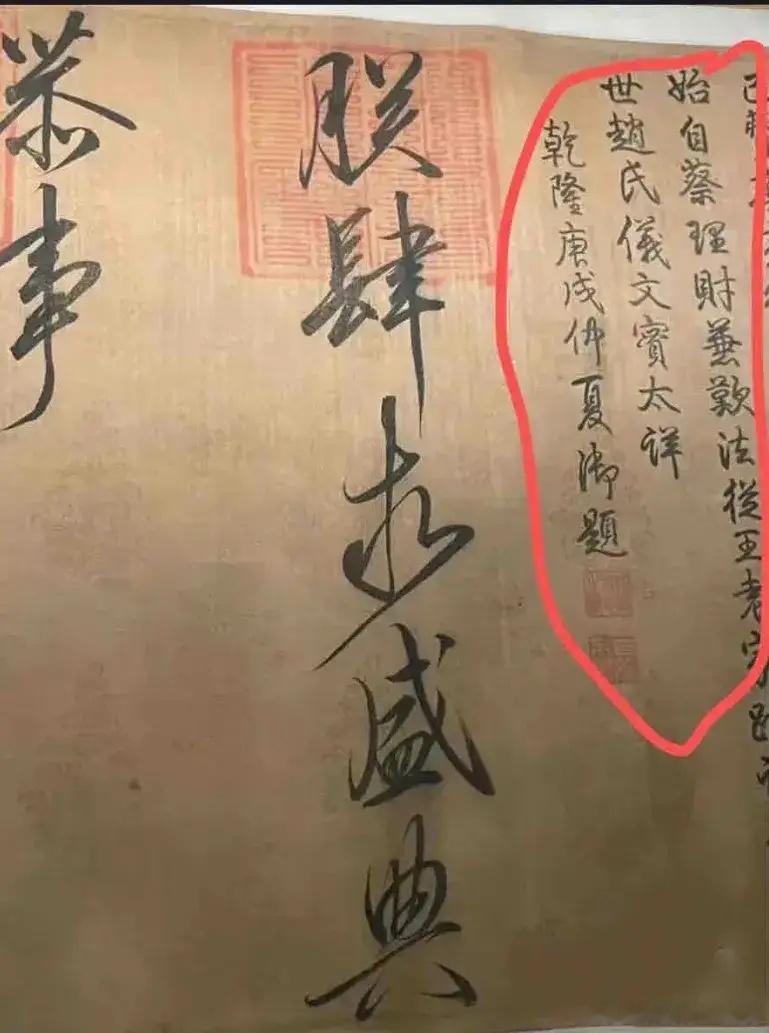 始自蔡理財兼歎法從王老家
世趙氏儀文實太詳
乾隆庚戌仲夏御題
朕肆求盛典
恭事